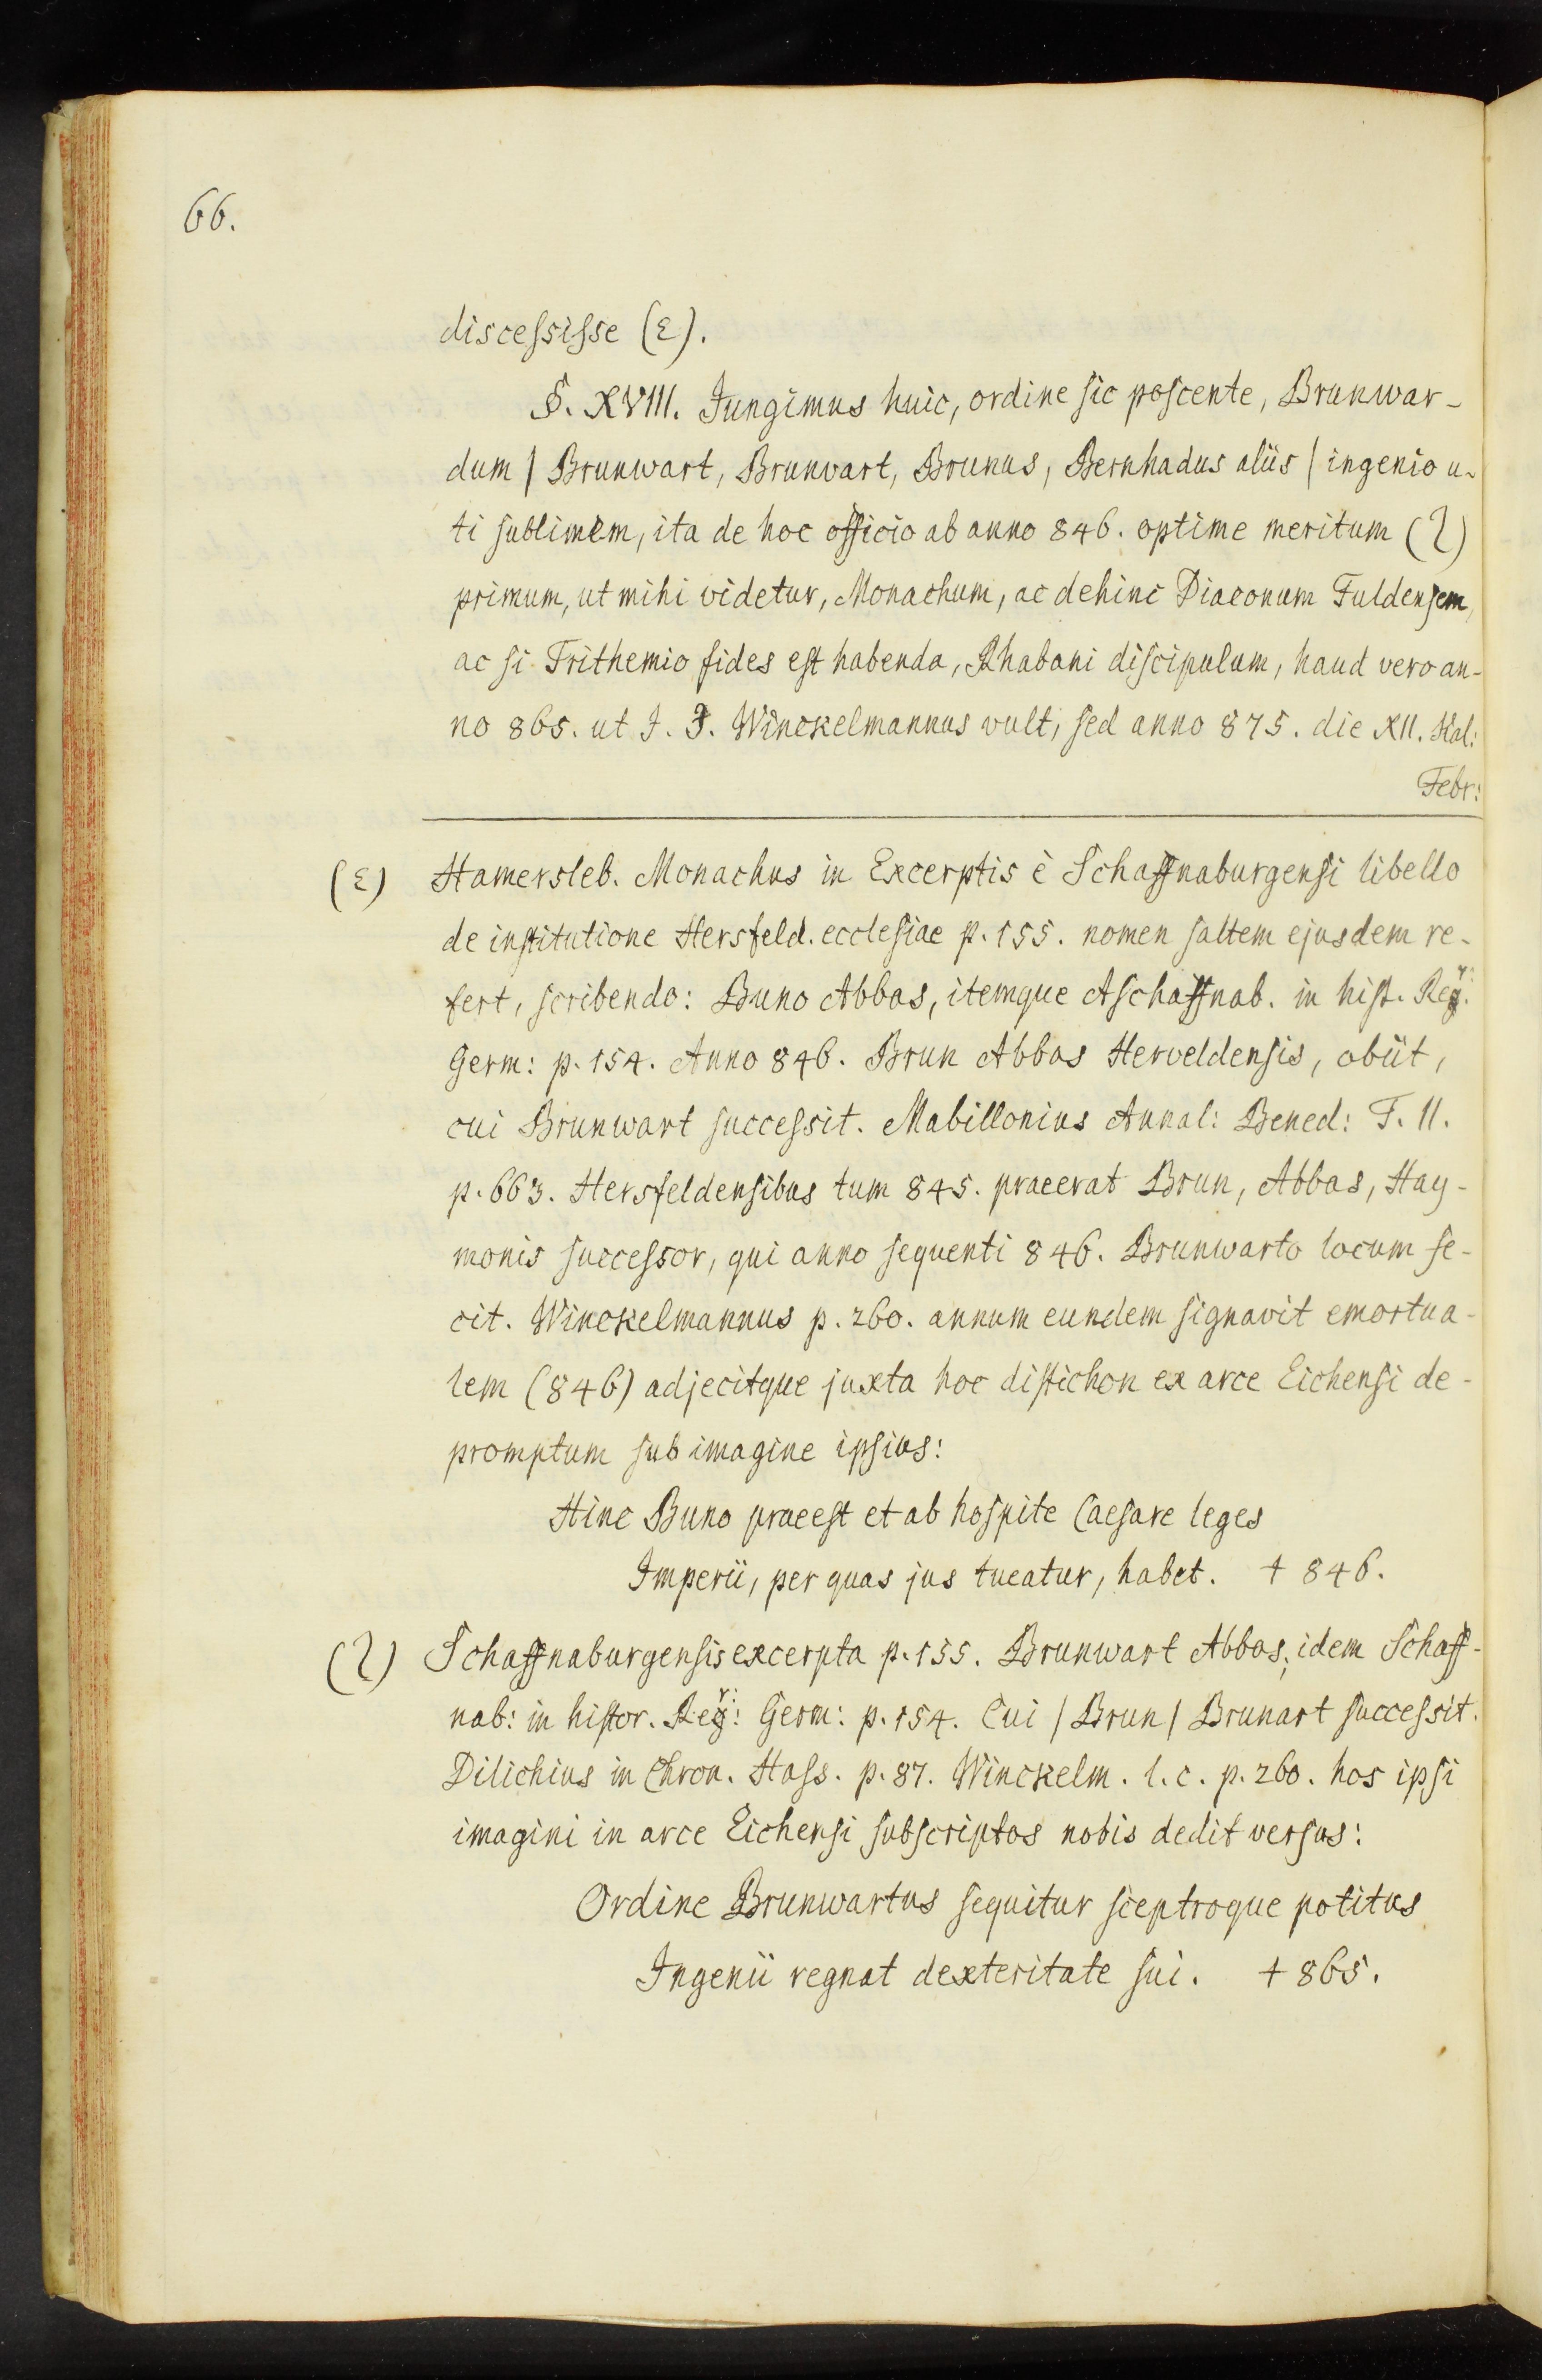 66.
discessisse (ε).
§. XVIII. Jungimus huic, ordine sic poscente, Brunwar-
dum / Brunwart, Brunvart, Brunus, Bernhadus aliis / ingenio u-
ti sublimem, ita de hoc officio ab anno 846. optime meritum (ζ)
primum, ut mihi videtur, Monachum, ac dehinc Diaconum Fuldensem,
ac si Trithemio fides est habenda, Rhabani discipulum, haud vero an-
no 865. ut J. J. Winckelmannus vult, sed anno 875. die XII. Kal:
Febr:
(ε) Hamersleb. Monachus in Excerptis è Schaffnaburgensi libello
de institutione Hersfeld. ecclesiae p. 155. nomen saltem ejusdem re-
fert, scribendo: Buno Abbas, itemque Aschaffnab. in hist. Rer:
Germ: p. 154. Anno 846. Brun Abbas Herveldensis, obiit,
cui Brunwart successit. Mabillonius Annal: Bened: T. II.
p. 663. Hersfeldensibus tum 845. praeerat Brun, Abbas, Hay-
monis successor, qui anno sequenti 846. Brunwarto locum fe-
cit. Winckelmannus p. 260. annum eundem signavit emortua-
lem (846) adjecitque juxta hoc distichon ex arce Eichensi de-
promptum sub imagine ipsius:
Hinc Buno praeest et ab hospite Caesare leges
Imperii, per quas jus tueatur, habet. † 846.
(ζ) Schaffnaburgensis excerpta p. 155. Brunwart Abbas; idem Schaff-
nab: in histor. Rer: Germ: p. 154. Cui / Brun / Brunart successit.
Dilichius in Chron. Hass. p. 87. Winckelm. l. c. p. 260. hos ipsi
imagini in arce Eichensi subscriptos nobis dedit versus:
Ordine Brunwartus sequitur sceptroque potitus
Ingenii regnat dexteritate sui. † 865.